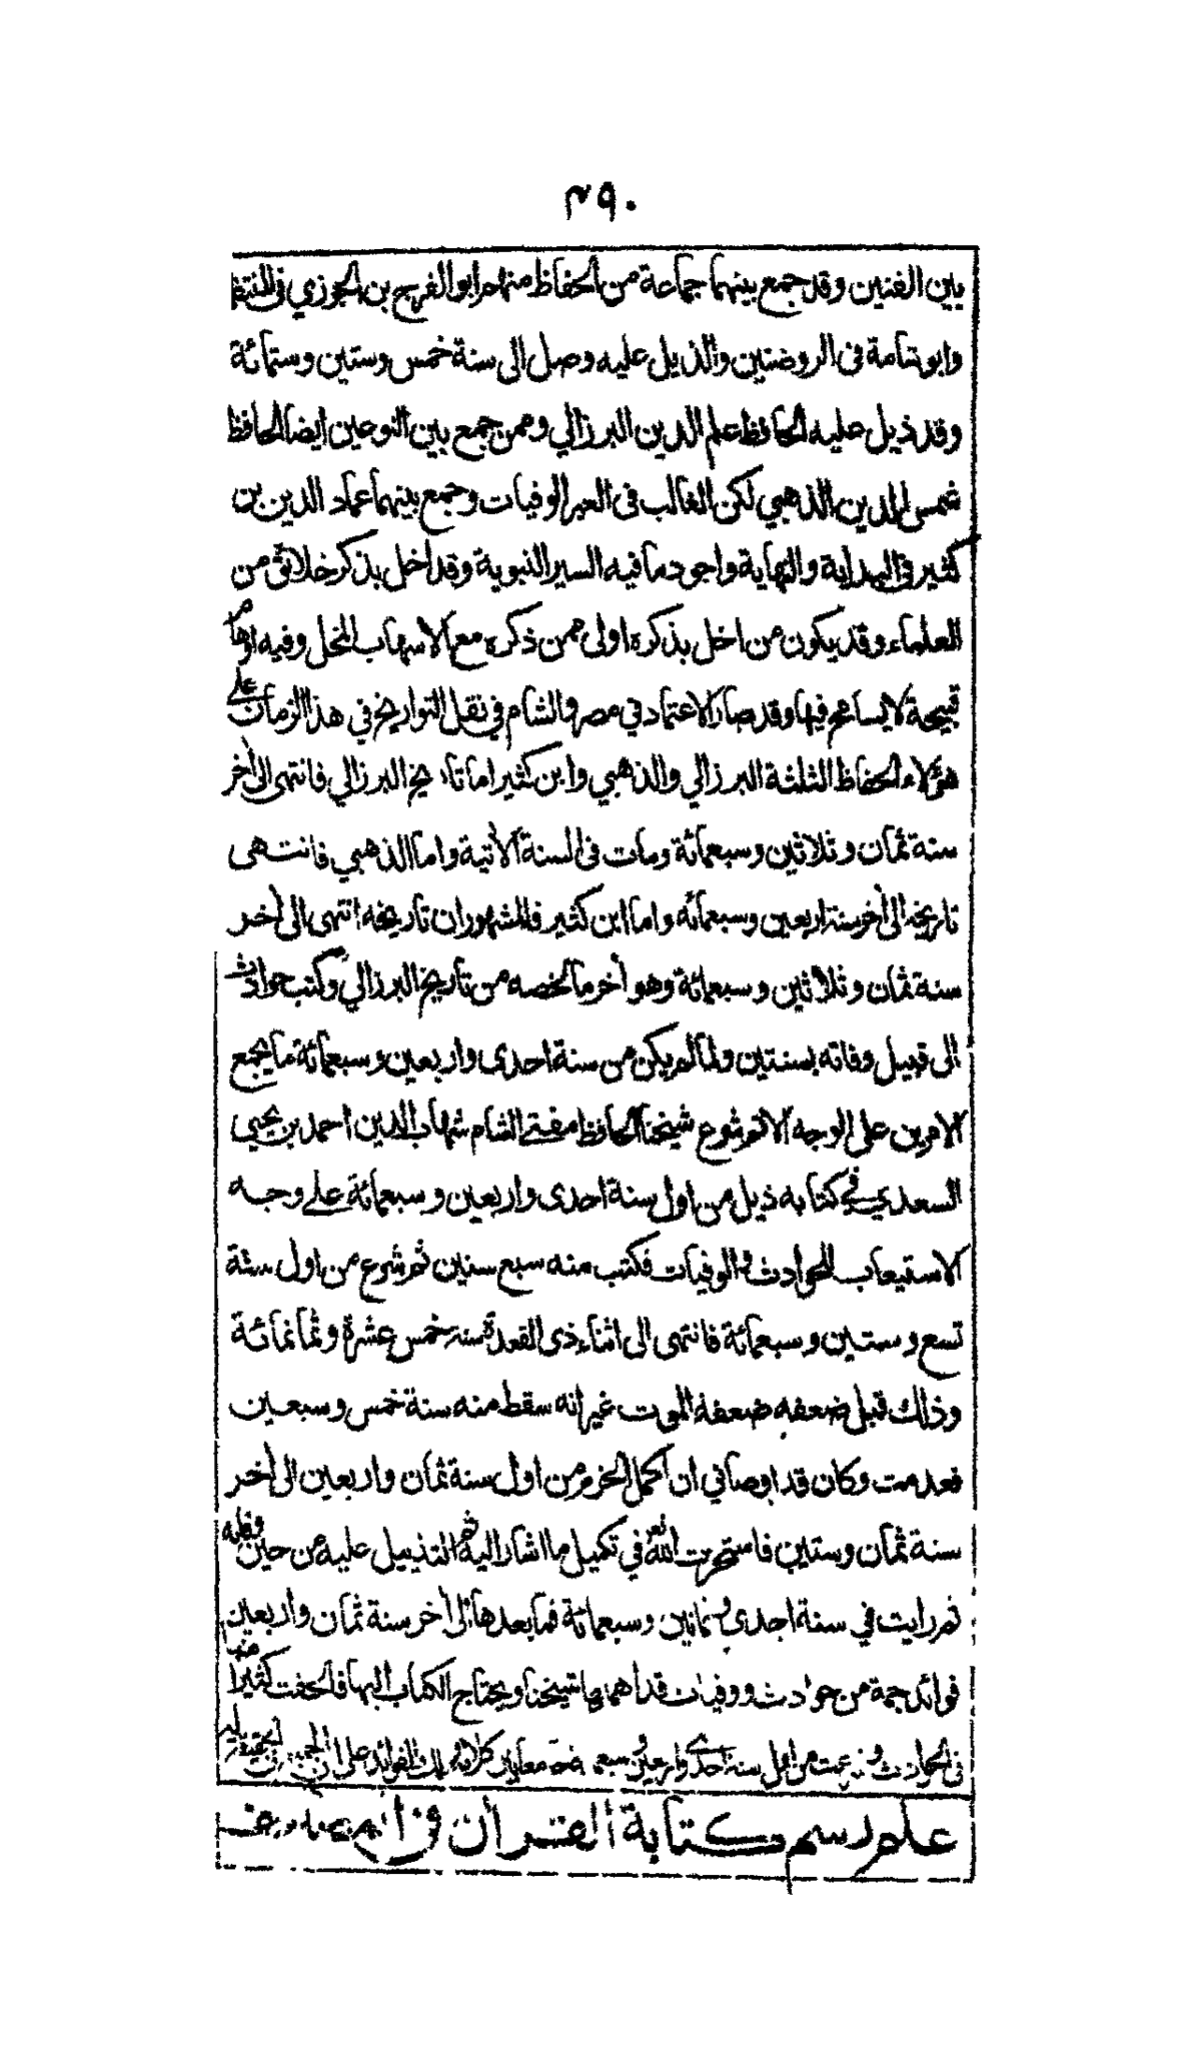 ٢٩٠
بين الفنين وقد جمع بينهما جماعة من الحفاظ منهم ابو الفرج بن الجوزي في المنتظم
وابو شامة في الروضتين والذيل عليه وصل الى سنة خمس وستين وستمائة
وقد ذيل عليه الحافظ علم الدين البرزالي وممن جمع بين النوعين ايضا الحافظ
شمس الدين الذهبي لكن الغالب في العبر الوفيات وجمع بينهما عماد الدين بن
كثير في البداية والنهاية واجود ما فيه السير النبوية وقد اخل بذكر خلائق من
العلماء وقد يكون من اخل بذكره اولى ممن ذكره مع الاسهاب المخل وفيه اوهام
قبيحة لا يسامح فيها وقد صار الاعتماد في مصر والشام في نقل التواريخ في هذا الزمان على
هؤلاء الحفاظ الثلثة البرزالي والذهبي وابن كثير اما تاريخ البرزالي فانتهى الى أخر
سنة ثمان وثلاثين وسبعمائة ومات في السنة الأتية واما الذهبي فانتهى
تاريخه الى أخر سنة اربعين وسبعمائه واما ابن كثير فالمشهور ان تاريخه انتهى الى أخر
سنة ثمان وثلاثين وسبعمائة وهو أخر ما لخصه من تاريخ البرزالي وكتب حوادث
الى قبيل وفاته بسنتين ولما لم يكن من سنة احدى واربعين وسبعمائة ما يجمع
الامرين على الوجه الاتم شرع شيخنا الحافظ مفتي الشام شهاب الدين احمد بن يحيى
السعدي في كتابه ذيل من اول سنة احدى واربعين وسبعمائة على وجه
الاستيعاب للحوادث والوفيات فكتب منه سبع سنين ثم شرع من اول سنة
تسع وستين وسبعمائة فانتهى الى اثناء ذى القعدة سنة خمس عشرة وثمانمائة
وذلك قبل ضعفه ضعفة الموت غير انه سقط منه سنة خمس وسبعين
فعدمت وكان قد اوصاني ان اكمل الخرم من اول سنة ثمان واربعين الى أخر
سنة ثمان وستين فاستخرت الله تع في تكميل ما اشار اليه ثم التذييل عليه من حين وفاته
ثم رايت في سنة احدى وثمانين وسبعمائة فما بعدها الى أخر سنة ثمان واربعين
فوائد جمة من حوادث ووفيات قد اهملها شيخنا ويحتاج الكتاب اليها فالحقت كثيرا منها
في الحوادث من اول سنة احدى واربعين وسبعمائة الفوائد على ان
علم رسم كتابة القران في المصاحف